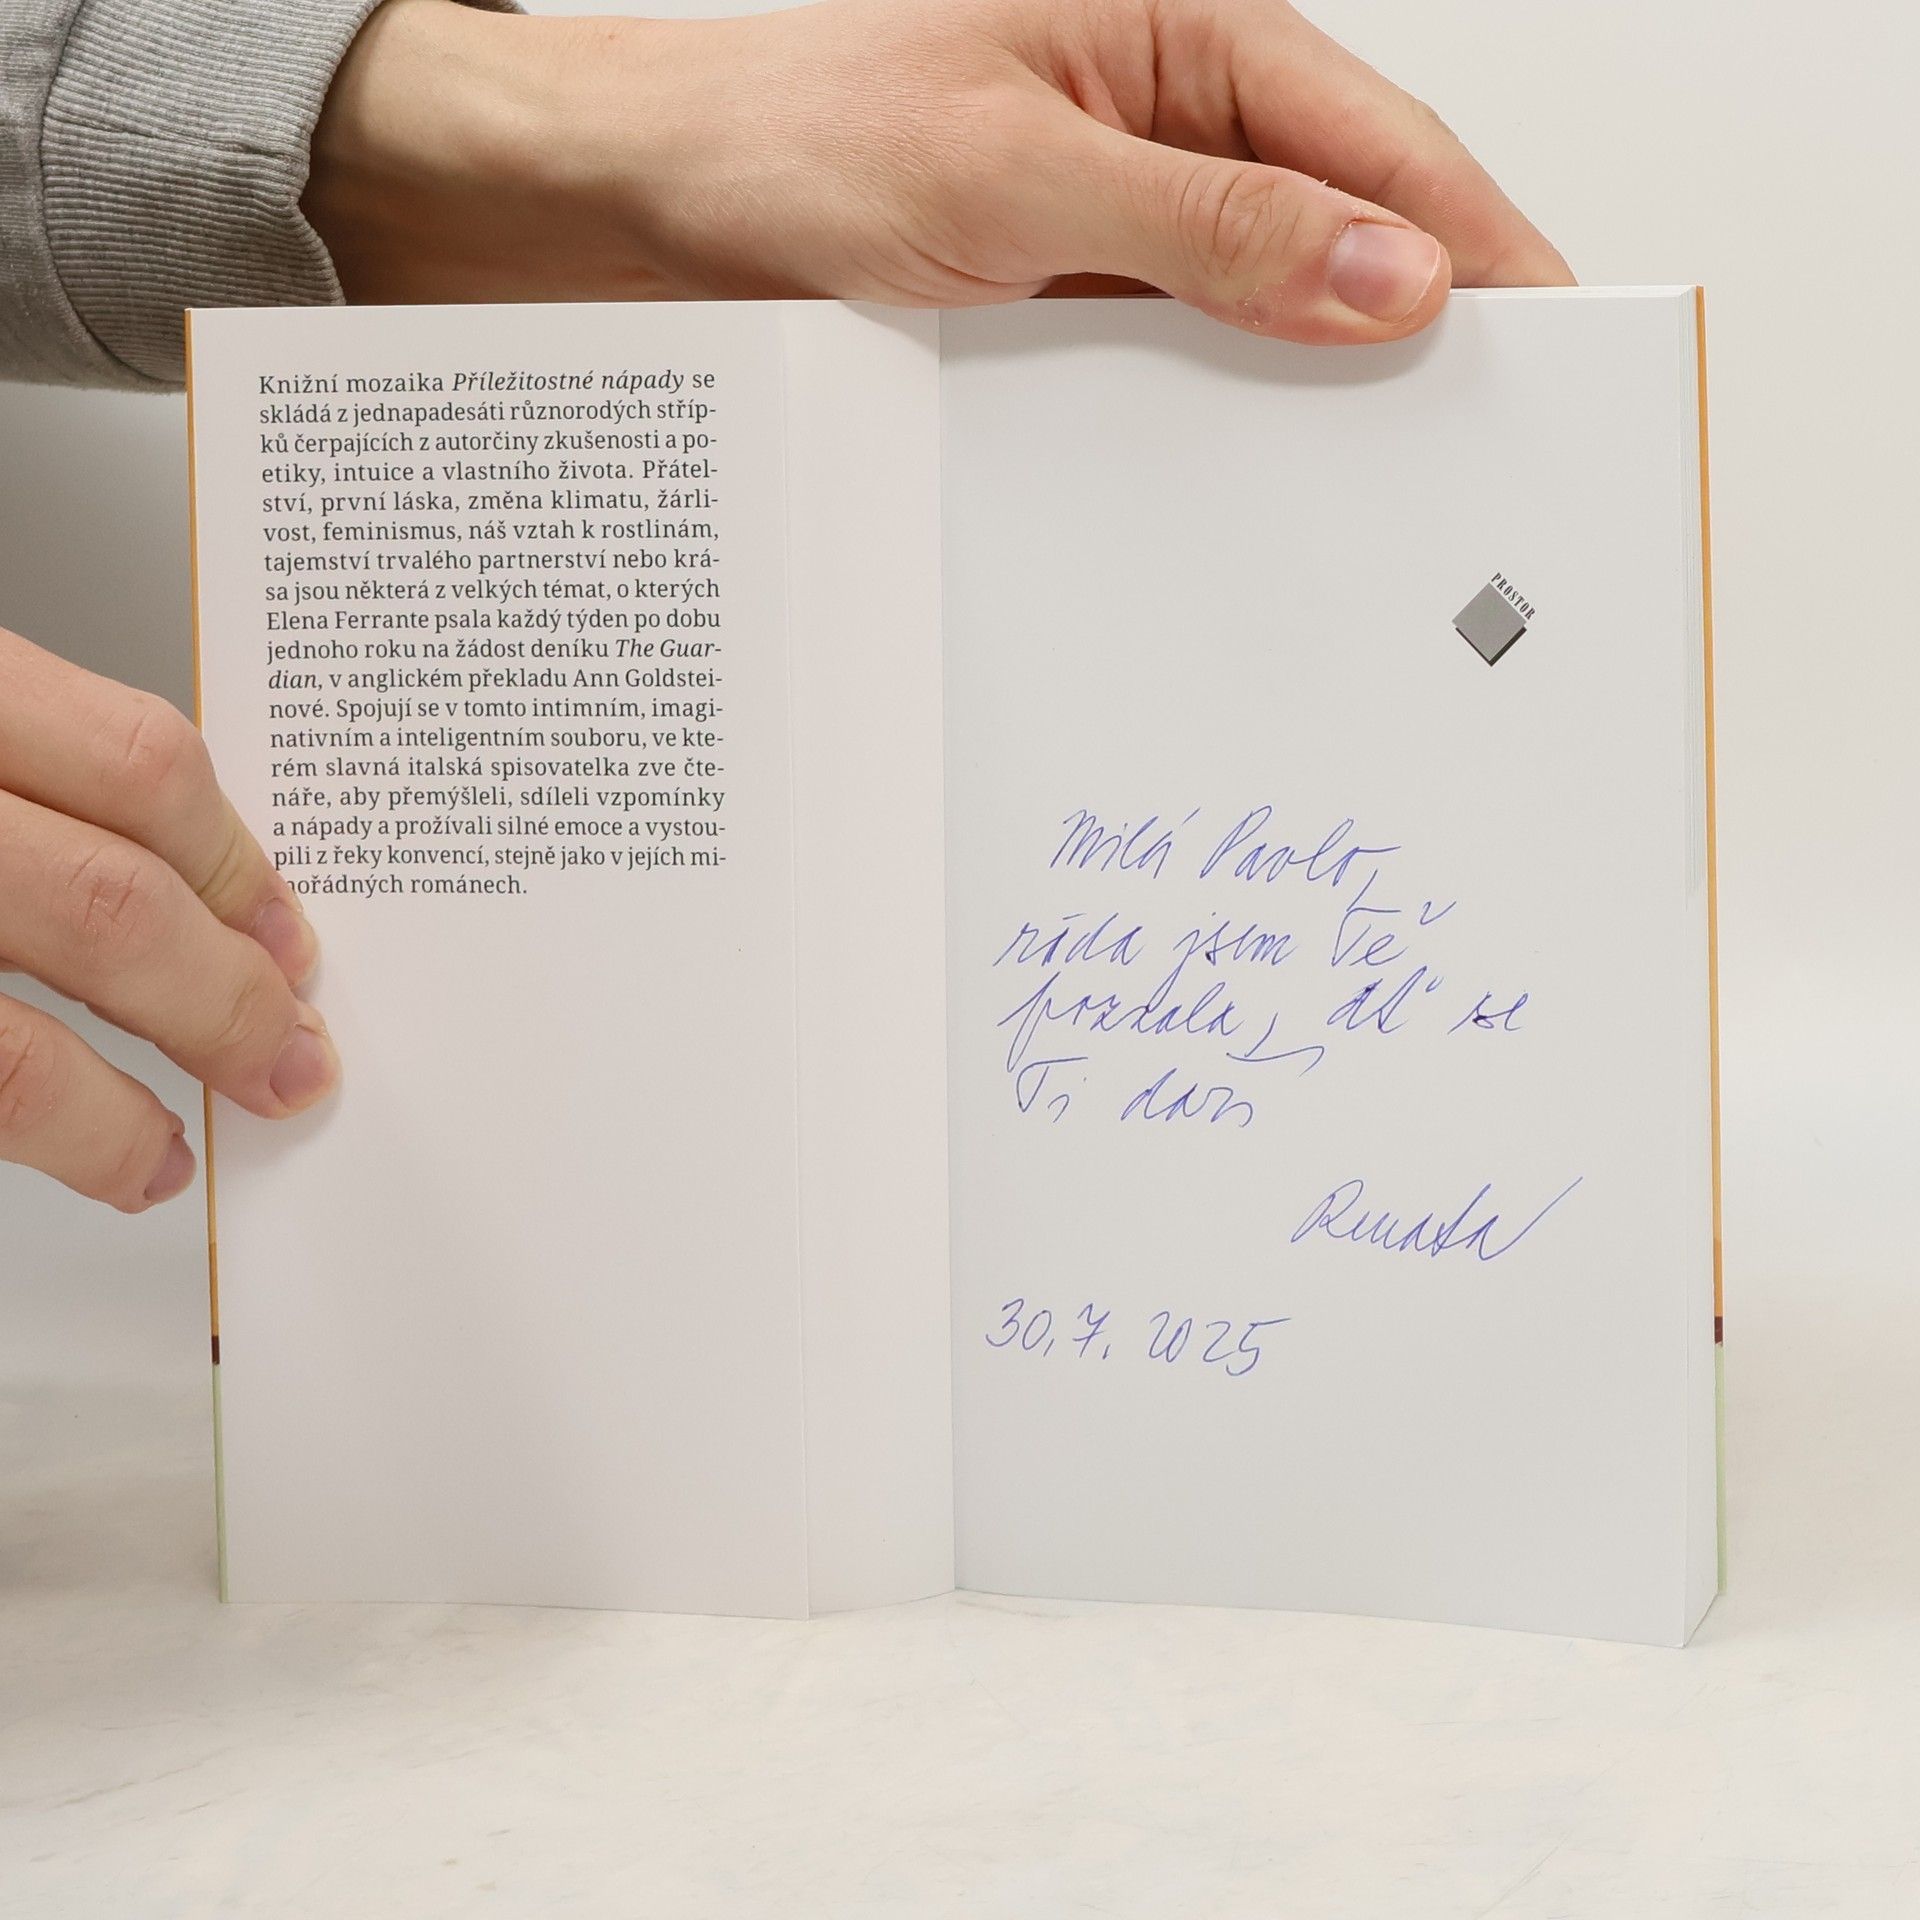 Knižní mozaika Příležitostné nápady se
skládá z jednapadesáti různorodých stříp-
ků čerpajících z autorčiny zkušenosti a po-
etiky, intuice a vlastního života. Přátel-
ství, první láska, změna klimatu, žárli-
vost, feminismus, náš vztah k rostlinám,
tajemství trvalého partnerství nebo krá-
sa jsou některá z velkých témat, o kterých
Elena Ferrante psala každý týden po dobu
jednoho roku na žádost deníku The Guar-
dian, v anglickém překladu Ann Goldstei-
nové. Spojují se v tomto intimním, imagi-
nativním a inteligentním souboru, ve kte-
rém slavná italská spisovatelka zve čte-
náře, aby přemýšleli, sdíleli vzpomínky
a nápady a prožívali silné emoce a vystou-
pili z řeky konvencí, stejně jako v jejích mi-
nořádných románech.
PROSTOR
Milá Pavlo,
ráda jsem Tě
poznala, ať se
Ti daří
Renata
30.7. 2025